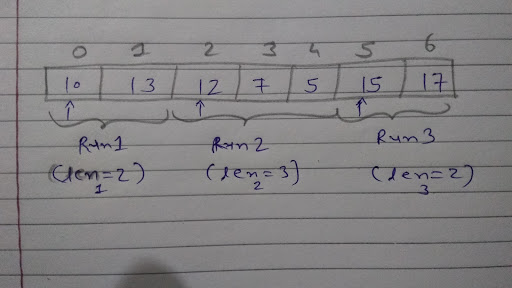 0 1 2 3 4 5 6
10 13 12 7 5 15 17
Run1 Run2 Run3
(len1=2) (len2=3) (len3=2)